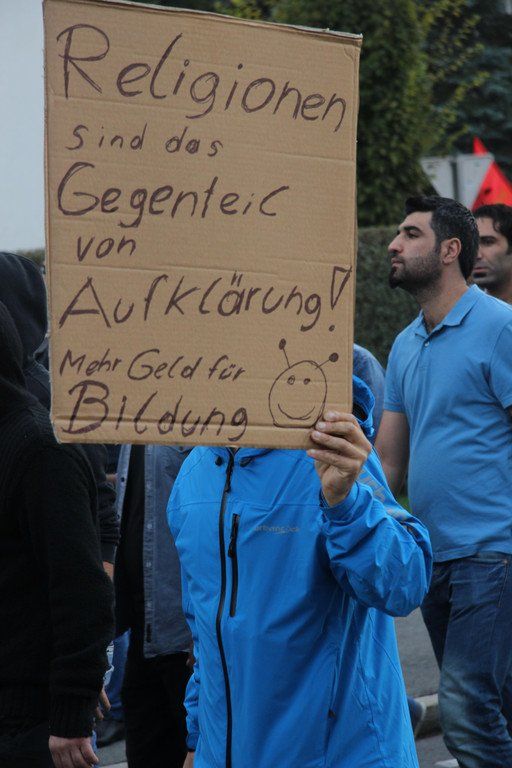 Religionen
sind das
Gegenteil
von
Aufklärung!
Mehr Geld für
Bildung